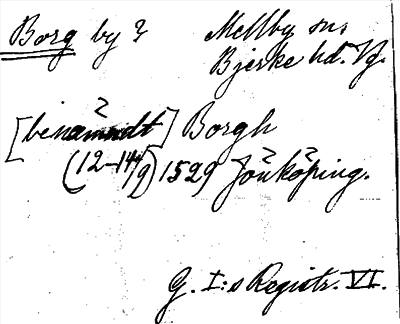 Borg by ? Mellby sn,
Bjerke hd. Vg.
?
[benämndt] Borgh
(12-14/9) 1529 Jönköping.
G. I:s Registr. VI.